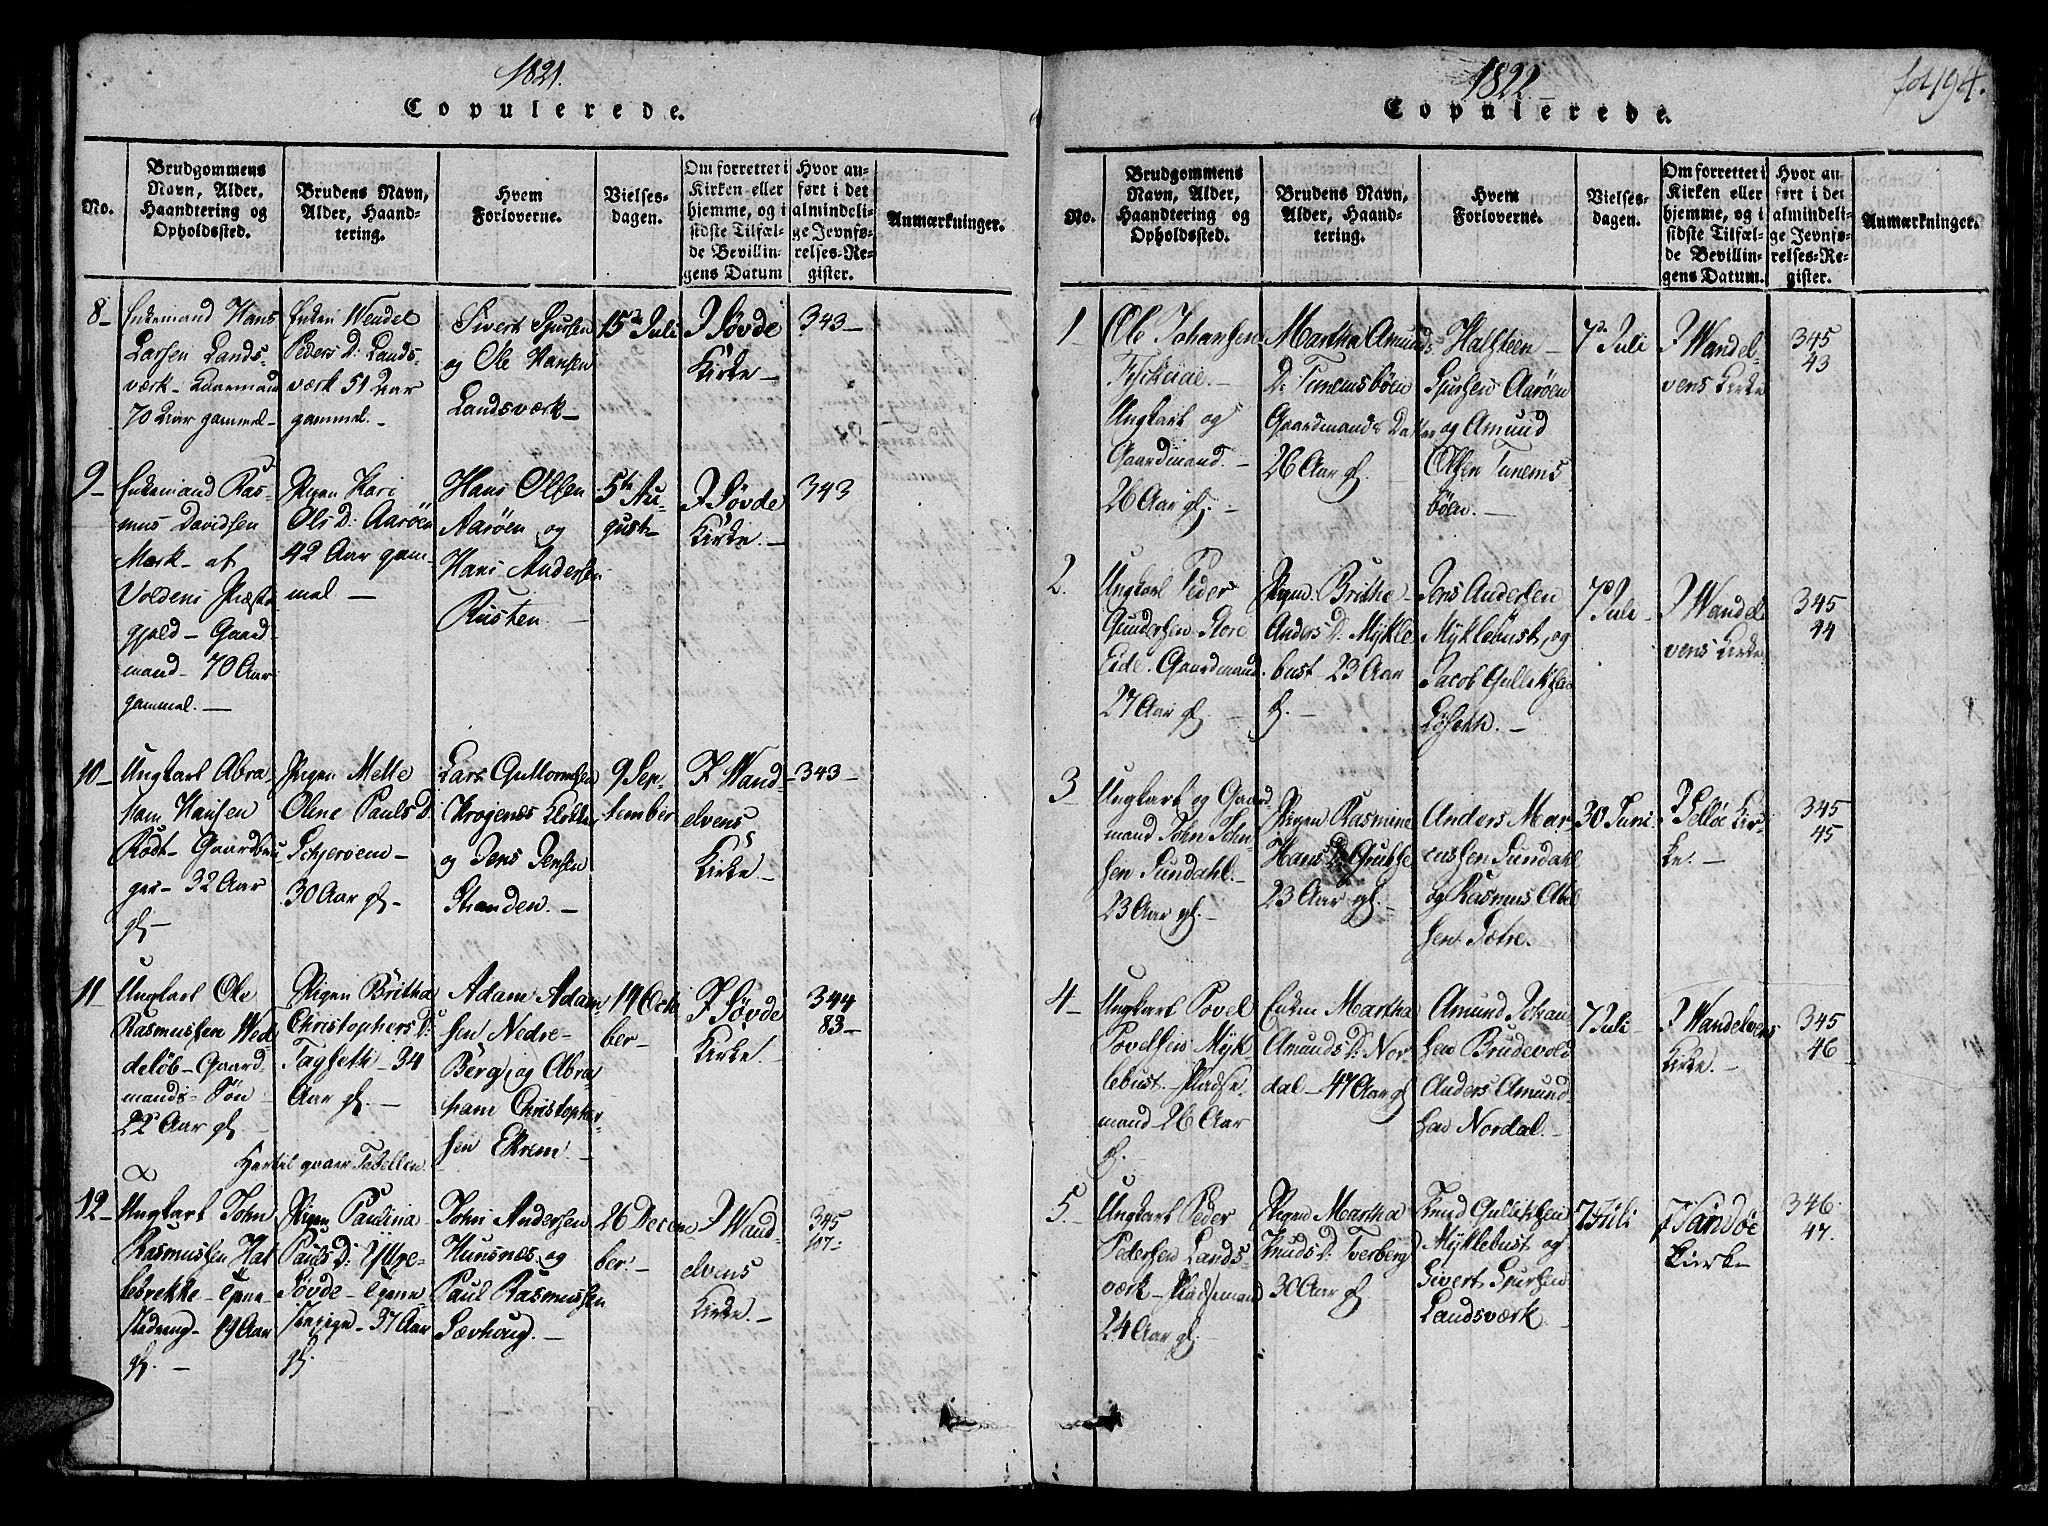 1821.
Copulerede.
No.
Brudgommens
Navn, Alder,
Haandtering og
Opholdssted.
Brudens Navn,
Alder, Haand-
tering.
Hvem
Forloverne.
Vielses-
dagen.
Om forrettet i
Kirken eller
hjemme, og i
sidste Tilfæl-
de Bevillin-
gens Datum
Hvor an-
ført i det
almindeli-
ge Jevnfø-
relses-Re-
gister.
Anmærkninger.
8-
Enkemand Hans
Larsen Lands-
værk- Kaarmand
70 Aar gammel-
Enken Wendel
Peders D: Lands-
værk 51 Aar
gammel.-
Sivert Spursen
og Ole Hansen
Landsværk-
15de Juli
I Søvde
Kirke-
343-
9-
Enkemand Ras-
mus Davidsen
Mork- af
Voldens Præste
gjeld- Gaard-
mand- 70 Aar
gammel.-
Pigen Kari
Ols D: Aarøen
42 Aar gam-
mel-
Hans Olsen
Aarøen og
Hans Andersen
Rusten.-
5te Au-
gust-
I Søvde
Kirke.-
343
10-
Ungkarl Abra-
ham Hansen
Rødt- Gaardbru
ger- 32 Aar
gl-
Pigen Mette
Oline Pauls D:
Schjeroem-
30 Aar gl-
Lars Guttormsen
Krogenæs Klokker
og Jens Jensen
Stranden.-
9 Sep-
tember
I Wand-
elvens
Kirke-
343-
11-
Ungkarl Ole
Rasmussen Wed-
deløb- Gaard-
mands- Søn
22 Aar gl.
Pigen Britha
Christophers D:
Tagseth- 34
Aar gl.-
Adam Adam-
sen Nedre-
Berg, og Abra-
ham Christopher-
sen Ekrem.-
14 Octo
ber-
I Søvde
Kirke.
344
83-
Hertil gaaer Tabellen
12-
Ungkarl John
Rasmussen Hal
lebrekke- Tjene-
stedreng- 19 Aar
gl.-
Pigen Paulina
Pauls D: Yttre-
Søvde- Tjene-
stepige- 37 Aar
gl.
John Andersen
Hunsnæs og
Paul Rasmussen
Sævhoug.-
26 Decem
ber.-
I Wand-
elvens
Kirke.-
345
107-
1822
fol 194.
Copulerede.
No.
Brudgommens
Navn, Alder,
Haandtering og
Opholdssted.
Brudens Navn,
Alder, Haand-
tering.
Hvem
Forloverne.
Vielses-
dagen.
Om forrettet i
Kirken eller
hjemme, og i
sidste Tilfæl-
de Bevillin-
gens Datum.
Hvor an-
ført i det
almindeli-
ge Jevnfø-
relses-Re-
gister.
Anmærkninger.
1
Ole Johansen
Ungkarl og
Gaardmand.-
26 Aar gl.-
Martha Amunds
D: Tunemsbøen
Gaardmands Datter
26 Aar gl.
Halsteen
Spursen Aarøen
og Amund
Olsen Tunems
bøen.-
7de Juli
I Wandel-
vens Kirke
345
43
2.
Ungkarl Peder
Gundersen Store
Eide. Gaardmand
27 Aar gl.-
Pigen Brithe
Anders D: Mykle
bust- 23 Aar
gl.-
Jens Andersen
Myklebust, og
Jacob Gulliksen
Løseth.-
7de Juli-
I Wandel
vens Kirke
345
44
3
Ungkarl og Gaard-
mand John John-
sen Sundahl.-
23 Aar gl.-
Pigen Rasmine
Hans D: Grubse
23 Aar gl.-
Anders Mar-
cussen Sundahl
og Rasmus Abel
sen Sætre.
30 Juni
I Selløe Kir-
ke.-
345
45
4
Ungkarl Povel
Povelsen Myk-
lebust.- Pladse
mand 26 Aar
gl.-
Enken Martha
Amunds D: Nor-
dal- 47 Aar gl
Amund Johan
sen Brudevold
Anders Amund-
sen Nordal.-
7 Juli-
I Wandelvens
Kirke-
345
46
5.
Ungkarl Peder
Pedersen Lands-
værk- Pladsemand
24 Aar gl.-
Pigen Martha
Knuds D: Tverberg
30 Aar gl
Knud Gulliksen
Myklebust og
Sivert Spursen
Landsværk.
7 Juli
I Sandøe
Kirke
346.
47.